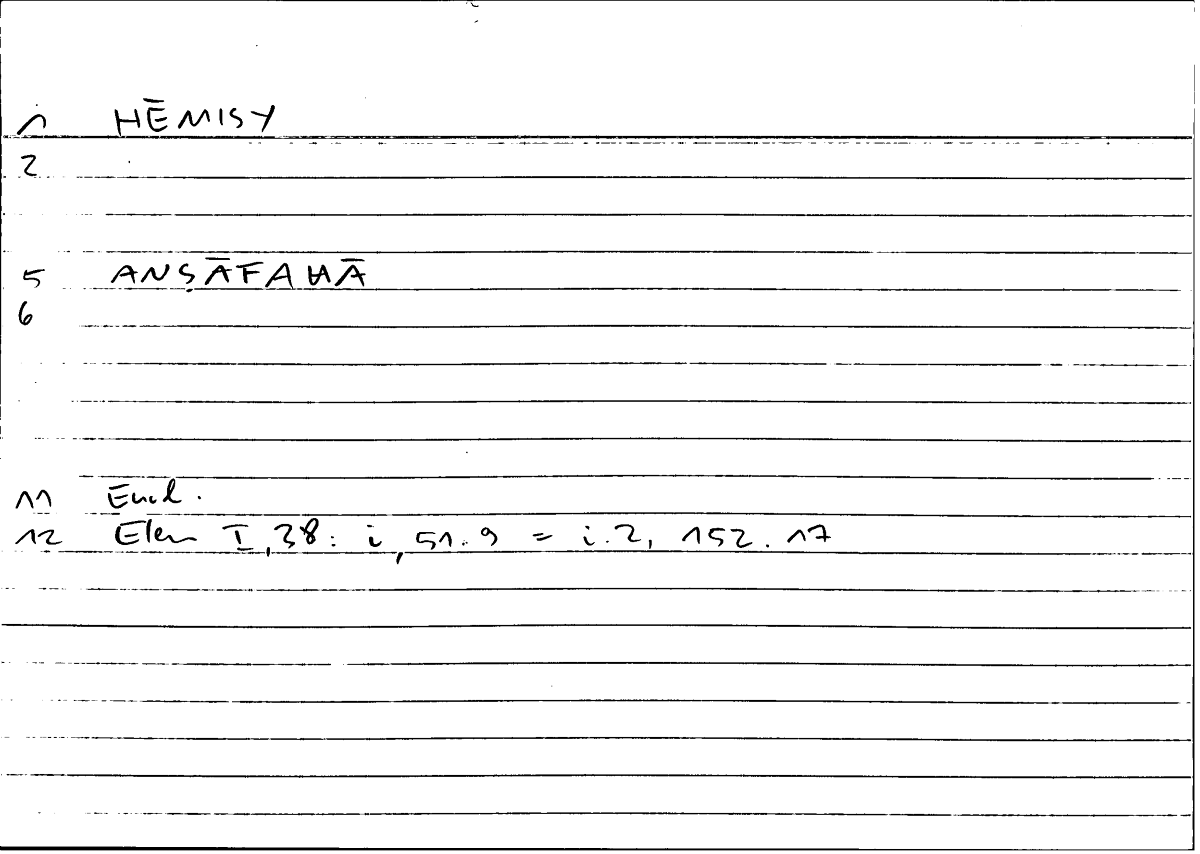 1 HĒMISY
2
5 ANṢĀFAHĀ
6
11 Eucl.
12 Elem I,38: i, 51.9 = i.2, 152.17